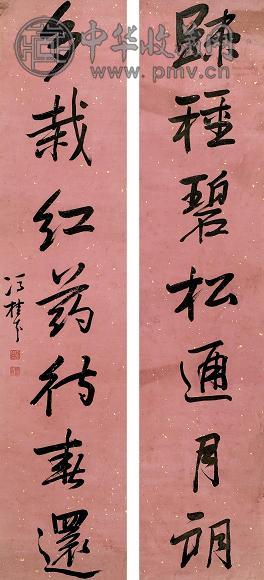 中华收藏网
www.pmv.cn
歸種碧松通月朗
多栽紅葯待春還
馮桂芬